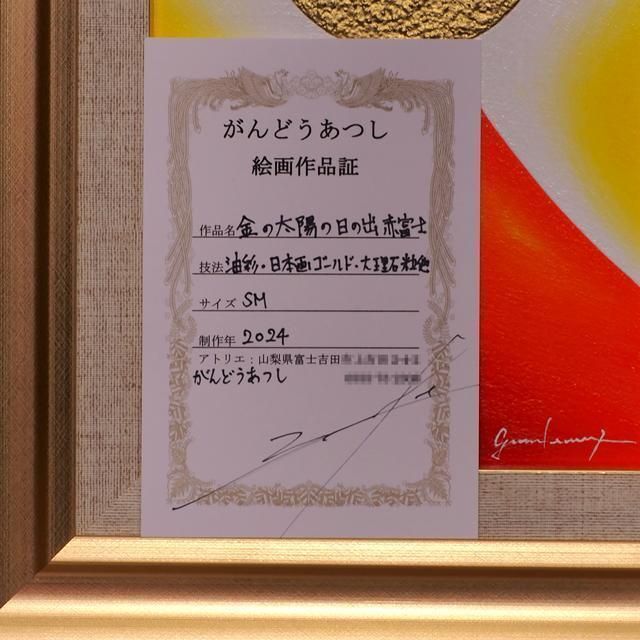 がんどうあつし
絵画作品証
作品名 金の太陽の日の出赤富士
技法 油彩・日本画ゴールド・大理石粒絵
サイズ SM
制作年 2024
アトリエ:山梨県富士吉田
がんどうあつし